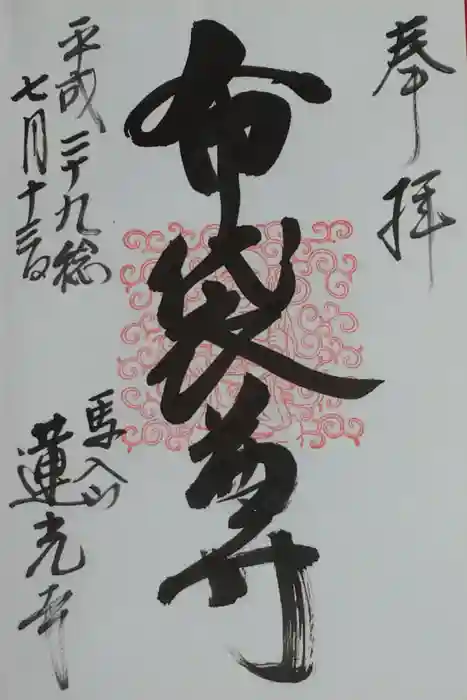 奉拝
布袋尊
平成二十九稔
七月十三日
馬入山
蓮光寺